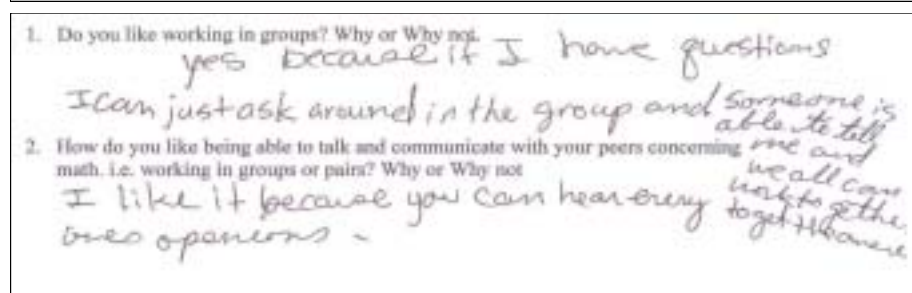 1. Do you like working in groups? Why or Why not.
yes because if I have questions
I can just ask around in the group and someone is
able to tell
me and
we all can
work together
to get the answer
2. How do you like being able to talk and communicate with your peers concerning
math. i.e. working in groups or pairs? Why or Why not
I like it because you can hear every
ones openions -